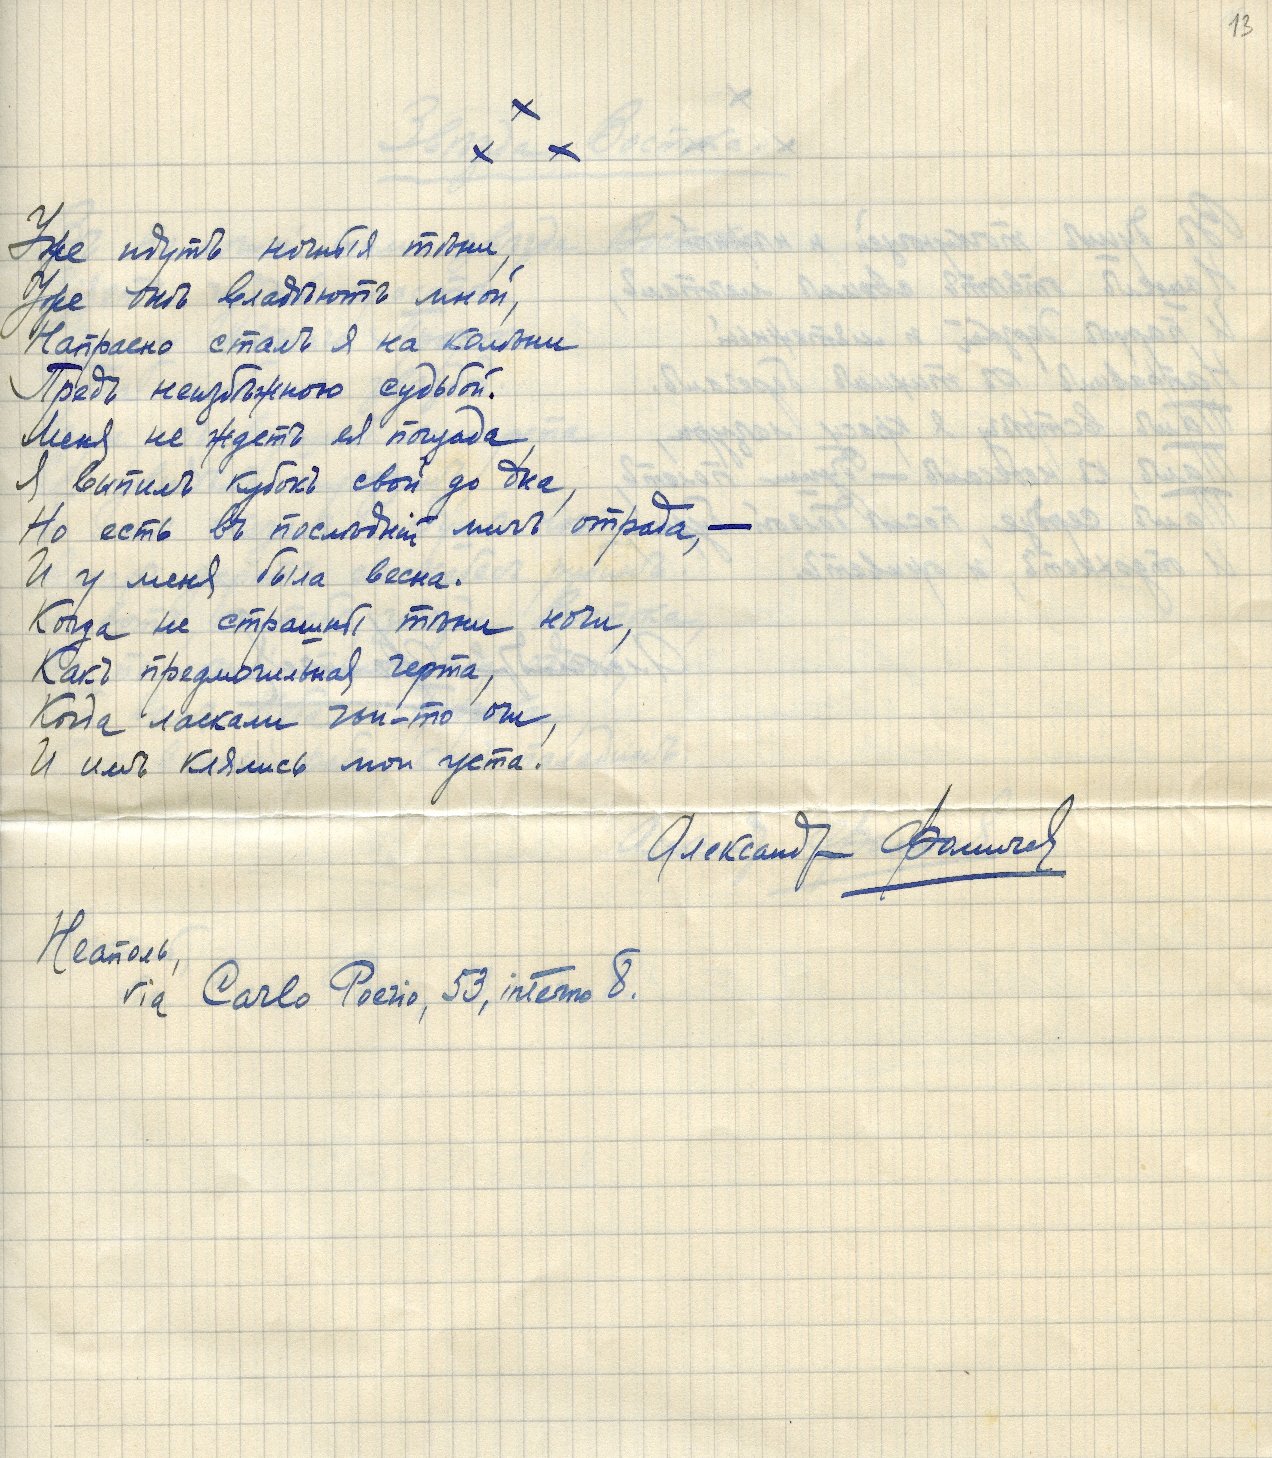 13
x
x x
Уже идутъ ночныя тѣни,
Уже онѣ владѣютъ мной,
Напрасно сталъ я на колѣни
Предъ неизбѣжною судьбой.
Меня не ждетъ ея пощада,
Я выпилъ кубокъ свой до дна,
Но есть въ послѣдній мигъ отрада, —
И у меня была весна.
Когда не страшны тѣни ночи,
Какъ предмогильная черта,
Когда ласкали чьи-то очи,
И имъ клялись мои уста.
Александр Фомичев
Неаполь,
via Carlo Poerio, 53, interno 8.